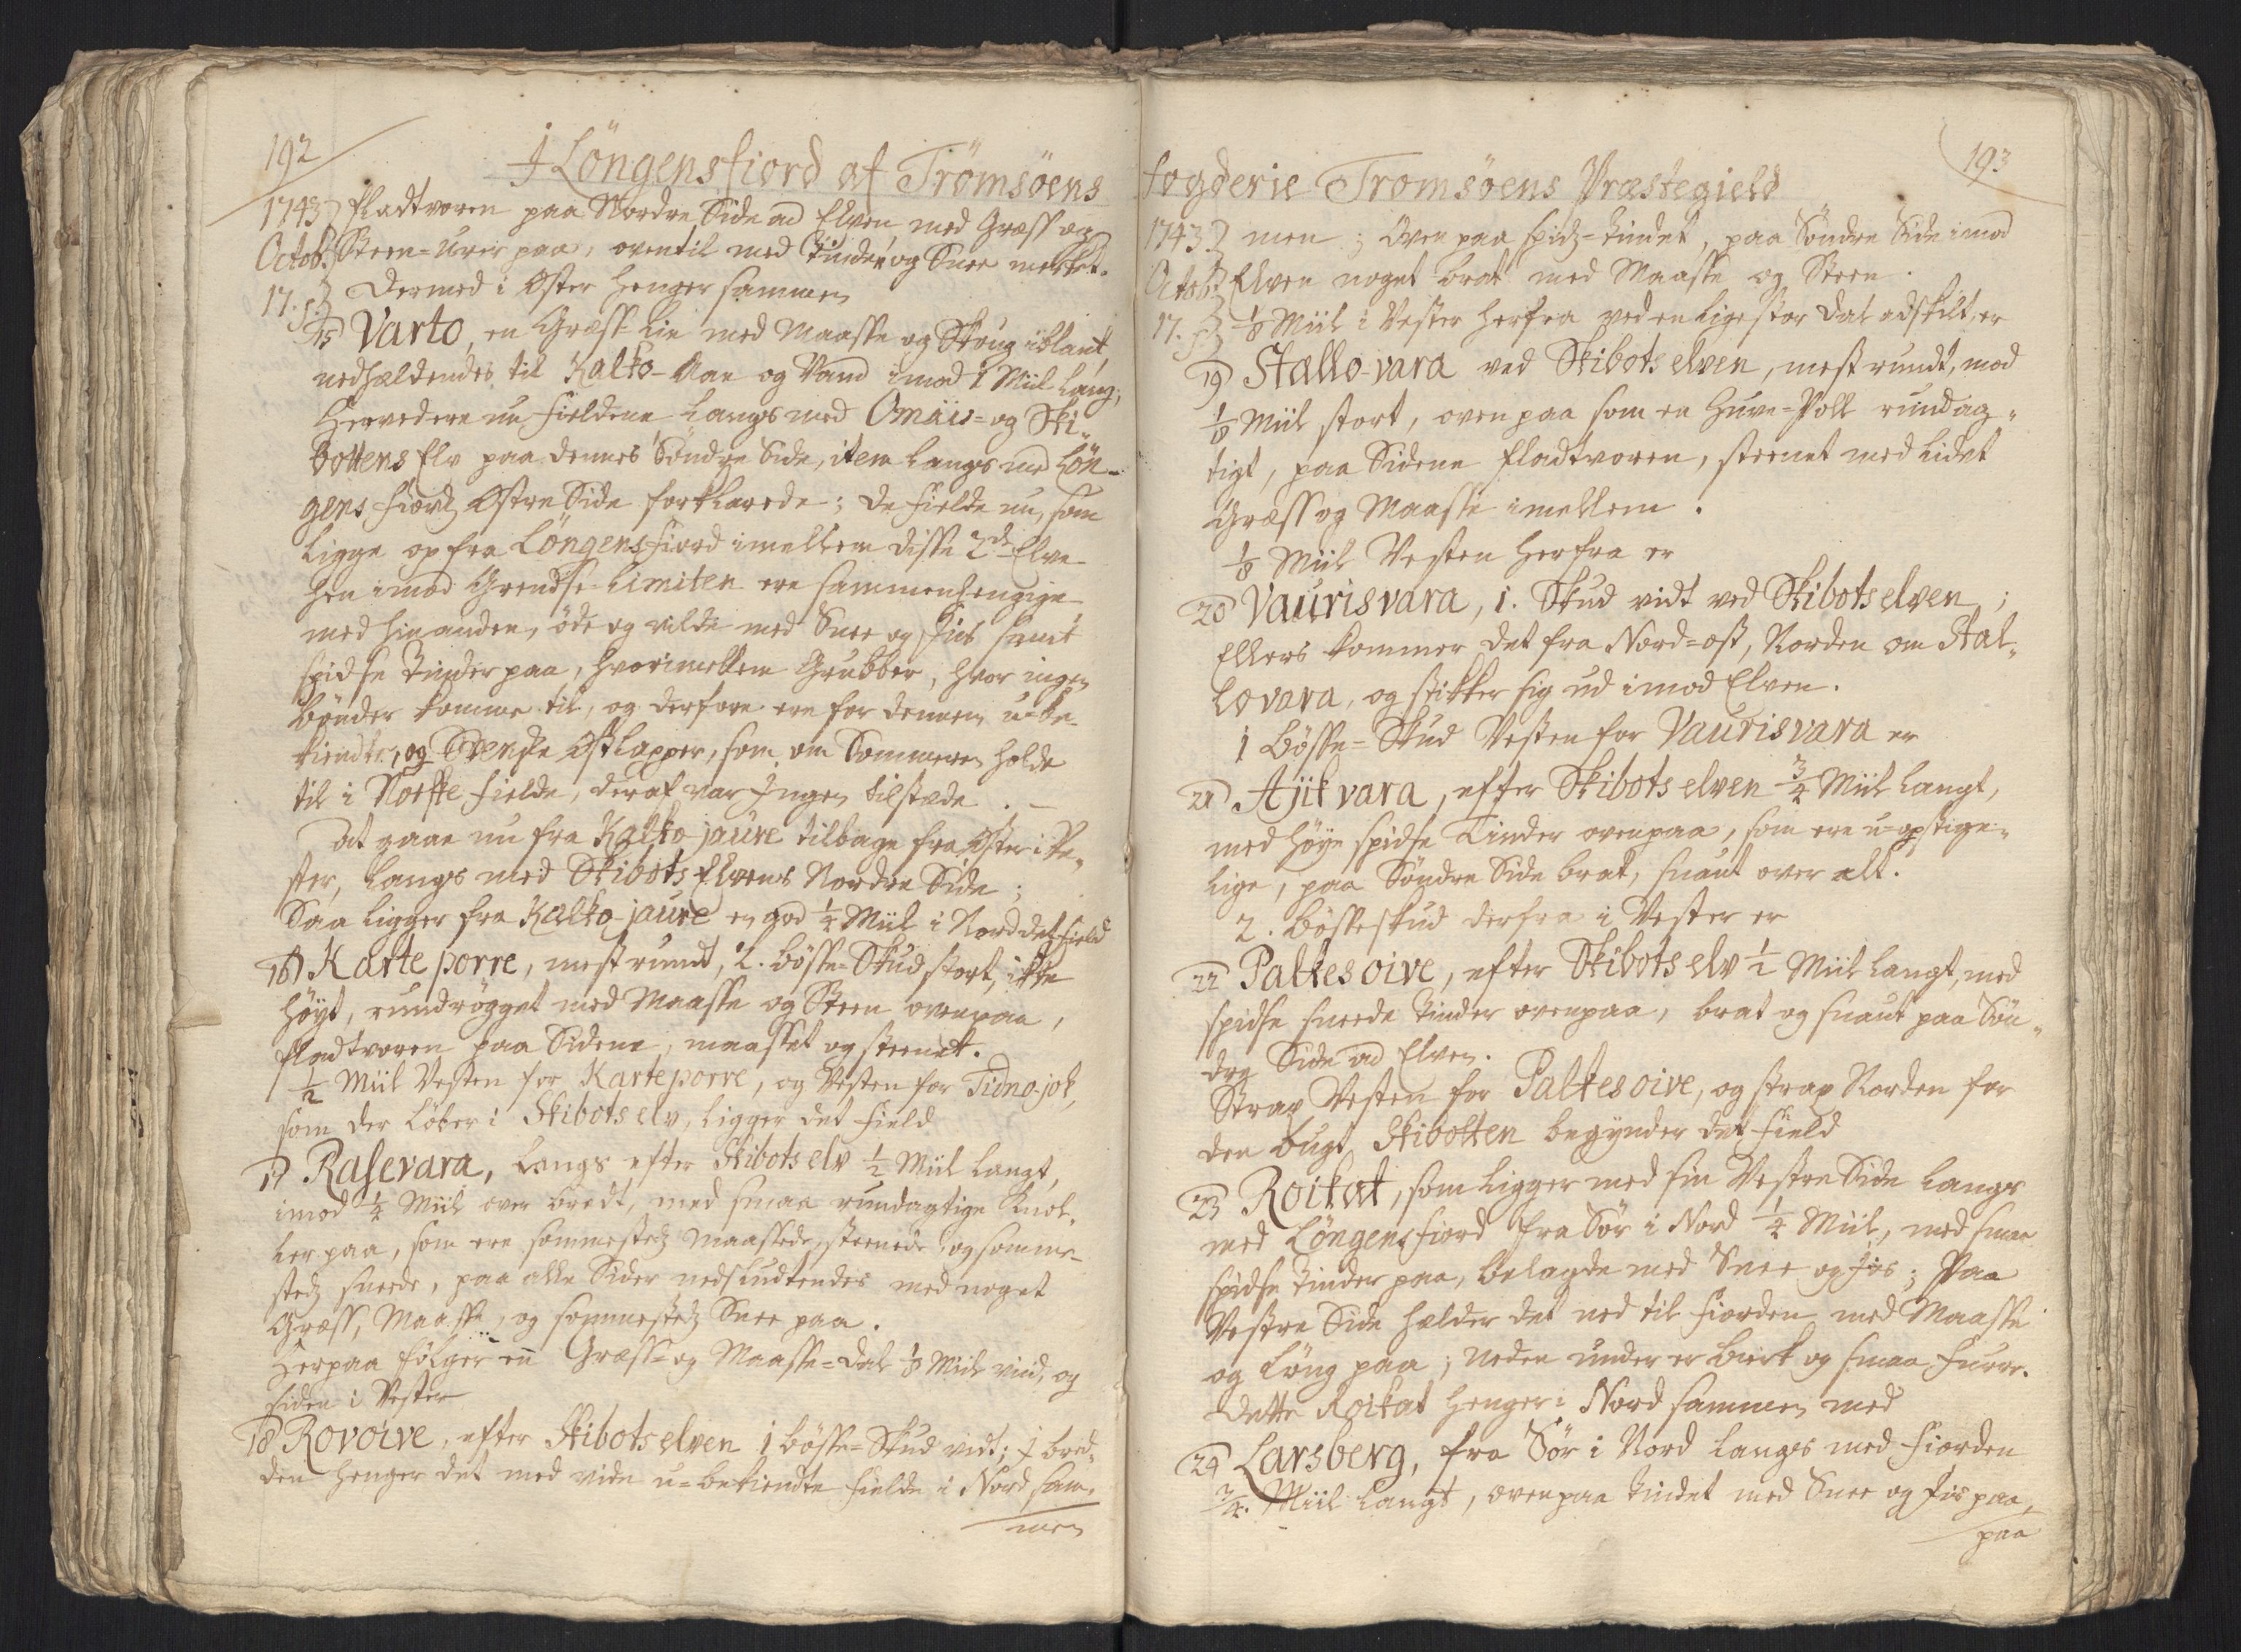 192
I Löngensfiord af Trömsöens
1743 fladtvoren paa Nordre Side ad Elven med Græss og
Octob. Steen-Urer paa, oventil med Tinder og Snee merket.
17. Dermed i Øster henger sammen
15) Varto, en Græss-Lie med Maasse og Skoug iblant,
nedhældendes til Kalko-Aae og Vand imod 1 Miil lang;
Herved ere nu Fieldene langs med Omäis- og Ski-
bottens Elv paa dennes Söndre Side, item langs med Lön-
gens Fiord Østre Side forklarede; De Fielde nu, som
ligge op fra Löngensfiord imellem disse 2de Elve
hen imod Grendse-Limiten ere sammenhengige
med hinanden, öde og vilde med Snee og Iis samt
spidse Tinder paa, hvorimellem Grubber, hvor ingen
Bönder komme til, og derfore ere for dennem u-be-
kiendte, og Svenske Østlapper, som om Sommeren holde
til i Norske Fielde, deraf var Ingen tilstæde. —
At gaae nu fra Kalko-jaure tilbage fra Øster i Ve-
ster, langs med Skibots Elvens Nordre Side;
Saa ligger fra Kalko-jaure en god 1/4 Miil i Nord det Field
16) Karte porre, mest rundt, 2. Bösse-Skud stort, ikke
höyt, rundrögget med Maasse og Steen ovenpaa,
fladtvoren paa Sidene, maasset og steenet.
1/2 Miil Vesten for Karteporre, og Vesten for Tidno-jok,
som der löber i Skibots elv, ligger det Field
17) Rasevara, langs efter Skibots elv 1/2 Miil langt,
imod 1/4 Miil over bredt, med smaa rundagtige Knol-
ler paa, som ere sommestedz maassede, steenede, og somme-
stedz sneede, paa alle Sider nedsludtendes med noget
Græss, Maasse, og sommestedz Snee paa.
Herpaa fölger en Græss- og Maasse-Dal 1/8 Miil viid, og
siden i Vester
18) Rovoive, efter Skibots elven 1 Bösse-Skud vidt; I bred-
den henger det med vide u-bekiendte Fielde i Nord sam-
men
193
fogderie Tromsöens Præstegield
1743 men; Oven paa spidz-tindet, paa Söndre Side imod
Octob. Elven noget brat med Maasse og Steen.
17. 1/8 Miil i Vester herfra ved en lige stor Dal adskilt, er
19) Stallo-vara ved Skibots elven, mest rundt, mod
1/8 Miil stort, oven paa som en Huve-Poll rundag-
tigt, paa Sidene fladtvoren, steenet med lidet
Græss og Maasse imellem.
1/8 Miil Vesten herfra er
20) Vaurisvara, 1. Skud vidt ved Skibots elven;
Ellers kommer det fra Nord-ost, Norden om Stal-
lovara, og stikker sig ud imod Elven.
1 Bösse-Skud Vesten for Vaurisvara er
21) Ajikvara, efter Skibots elven 3/4 Miil langt,
med höye spidse Tinder ovenpaa, som ere u-opstige-
lige, paa Söndre Side brat, snaut over alt.
2. Bösseskud derfra i Vester er
22) Paltesoive, efter Skibots elv 1/2 Miil langt, med
spidse sneede Tinder ovenpaa, brat og snaut paa Sön-
dre Side ad Elven.
Strax Vesten for Paltesoive, og strax Norden for
den Bugt Skibotten begynder det Field
23) Roikat, som ligger med sin Vestre Side langs
med Löngensfiord fra Sör i Nord 1/4 Miil, med smaa
spidse Tinder paa, belagde med Snee og Iis; Paa
Vestre Side hælder det ned til Fiorden med Maasse
og Löng paa; neden under er Birk og smaa Furre.
Dette Roikat henger i Nord sammen med
24) Larsberg, fra Sör i Nord langs med Fiorden
3/4. Miil langt, ovenpaa tindet med Snee og Iis paa,
paa